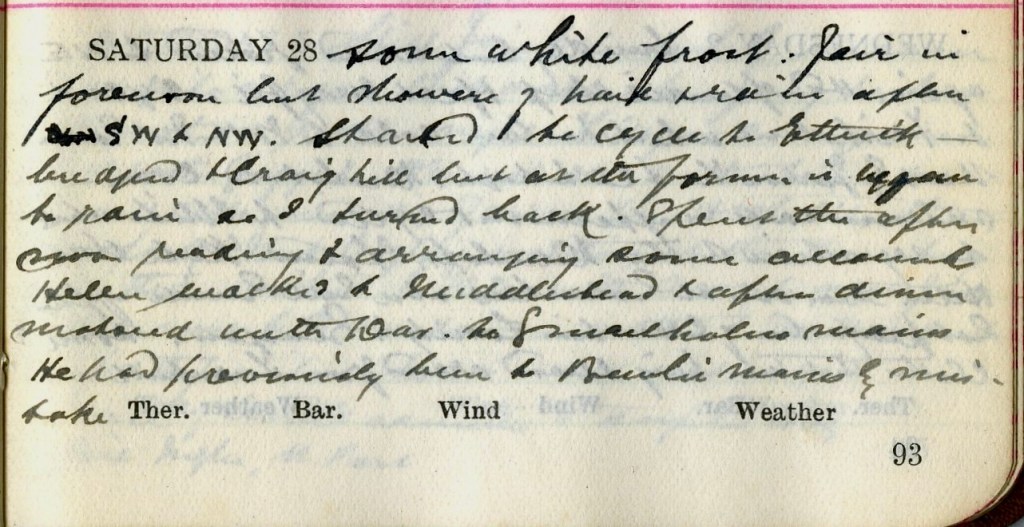 SATURDAY 28 some white frost. Fair in
forenoon but showers of hail & rain after
SW & NW. Started to cycle to Ettrick
bridgend & Craig hill but at the former it began
to rain so I turned back. Spent the after
noon reading & arranging some accounts
Helen walked to Middlestead & after dinner
motored with Dav. to Smailholm mains
He had previously been to mains by mis-
take Ther. Bar. Wind Weather
93